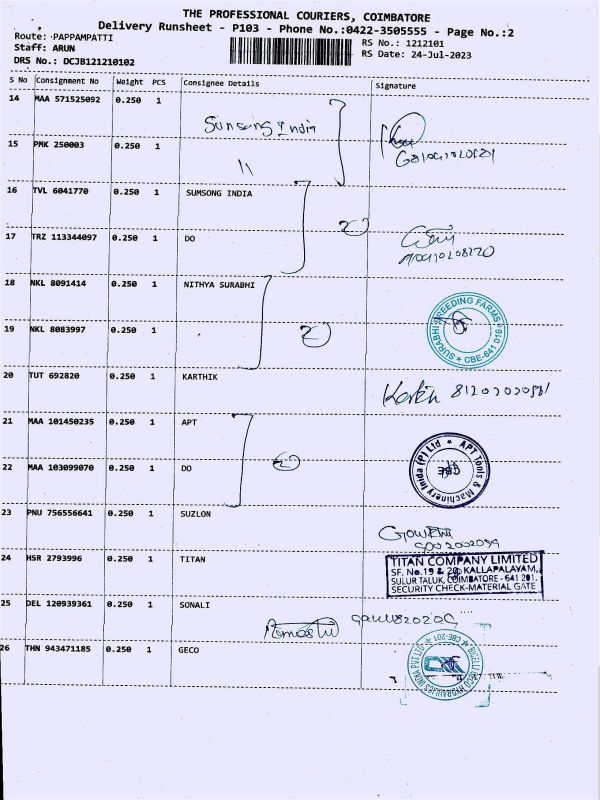 THE PROFESSIONAL COURIERS, COIMBATORE
Delivery Runsheet - P103 - Phone No.:0422-3505555 - Page No.:2
Route: PAPPAMPATTI
RS No.: 1212101
Staff: ARUN
RS Date: 24-Jul-2023
DRS No.: DCJB121210102
S No Consignment No Weight PCS Consignee Details Signature
14 MAA 571525092 0.250 1
Sumsong India
15 PMK 250003 0.250 1 "
16 TVL 6041770 0.250 1 SUMSONG INDIA
2
17 TRZ 113344097 0.250 1 DO
18 NKL 8091414 0.250 1 NITHYA SURABHI
19 NKL 8083997 0.250 1
2
SURABHI BREEDING FARMS * CBE-641 016 *
20 TUT 692820 0.250 1 KARTHIK
21 MAA 101450235 0.250 1 APT
2
APT Tools & Machinery India (P) Ltd * CBE
22 MAA 103099070 0.250 1 DO
23 PNU 756556641 0.250 1 SUZLON
24 HSR 2793996 0.250 1 TITAN
TITAN COMPANY LIMITED
SF. No.19 & 20, KALLAPALAYAM,
SULUR TALUK, COIMBATORE - 641 201.
SECURITY CHECK-MATERIAL GATE
25 DEL 120939361 0.250 1 SONALI
26 THN 943471185 0.250 1 GECO